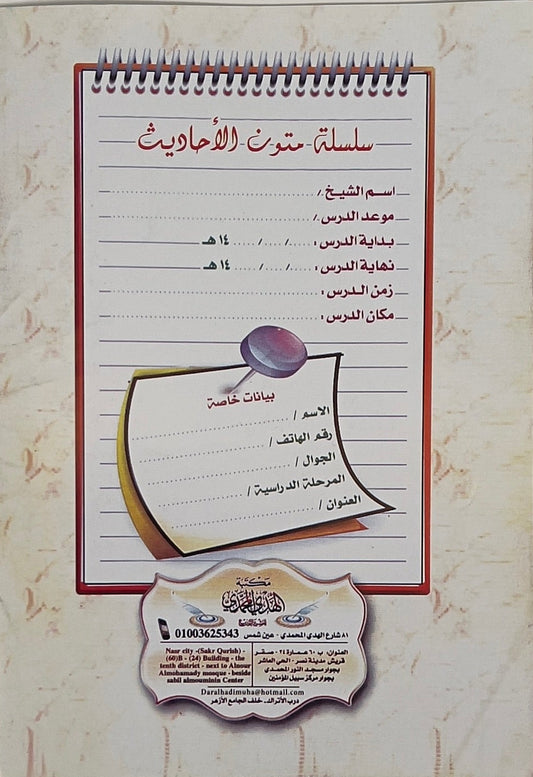 سلسلة متون الأحاديث
اسم الشيخ /
موعد الدرس /
بداية الدرس : ...... / ...... / ...... ١٤ هـ
نهاية الدرس : ...... / ...... / ...... ١٤ هـ
زمن الدرس :
مكان الدرس :
بيانات خاصة
الاسم /
رقم الهاتف /
الجوال /
المرحلة الدراسية /
العنوان /
مكتبة
الهدي المحمدي
٨١ شارع الهدي المحمدي - عين شمس 01003625343
العنوان: ب ٦٠ عمارة ٢٤ - صقر
قريش مدينة نصر - الحي العاشر
بجوار مسجد النور المحمدي
بجوار مركز سبيل المؤمنين
Nasr city -(Sakr Qurish) -
(60)B - (24) Building - the
tenth district - next to Alnour
Almohamady mosque - beside
sabil almouminin Center
Daralhadimuha@hotmail.com
درب الأتراك. خلف الجامع الأزهر